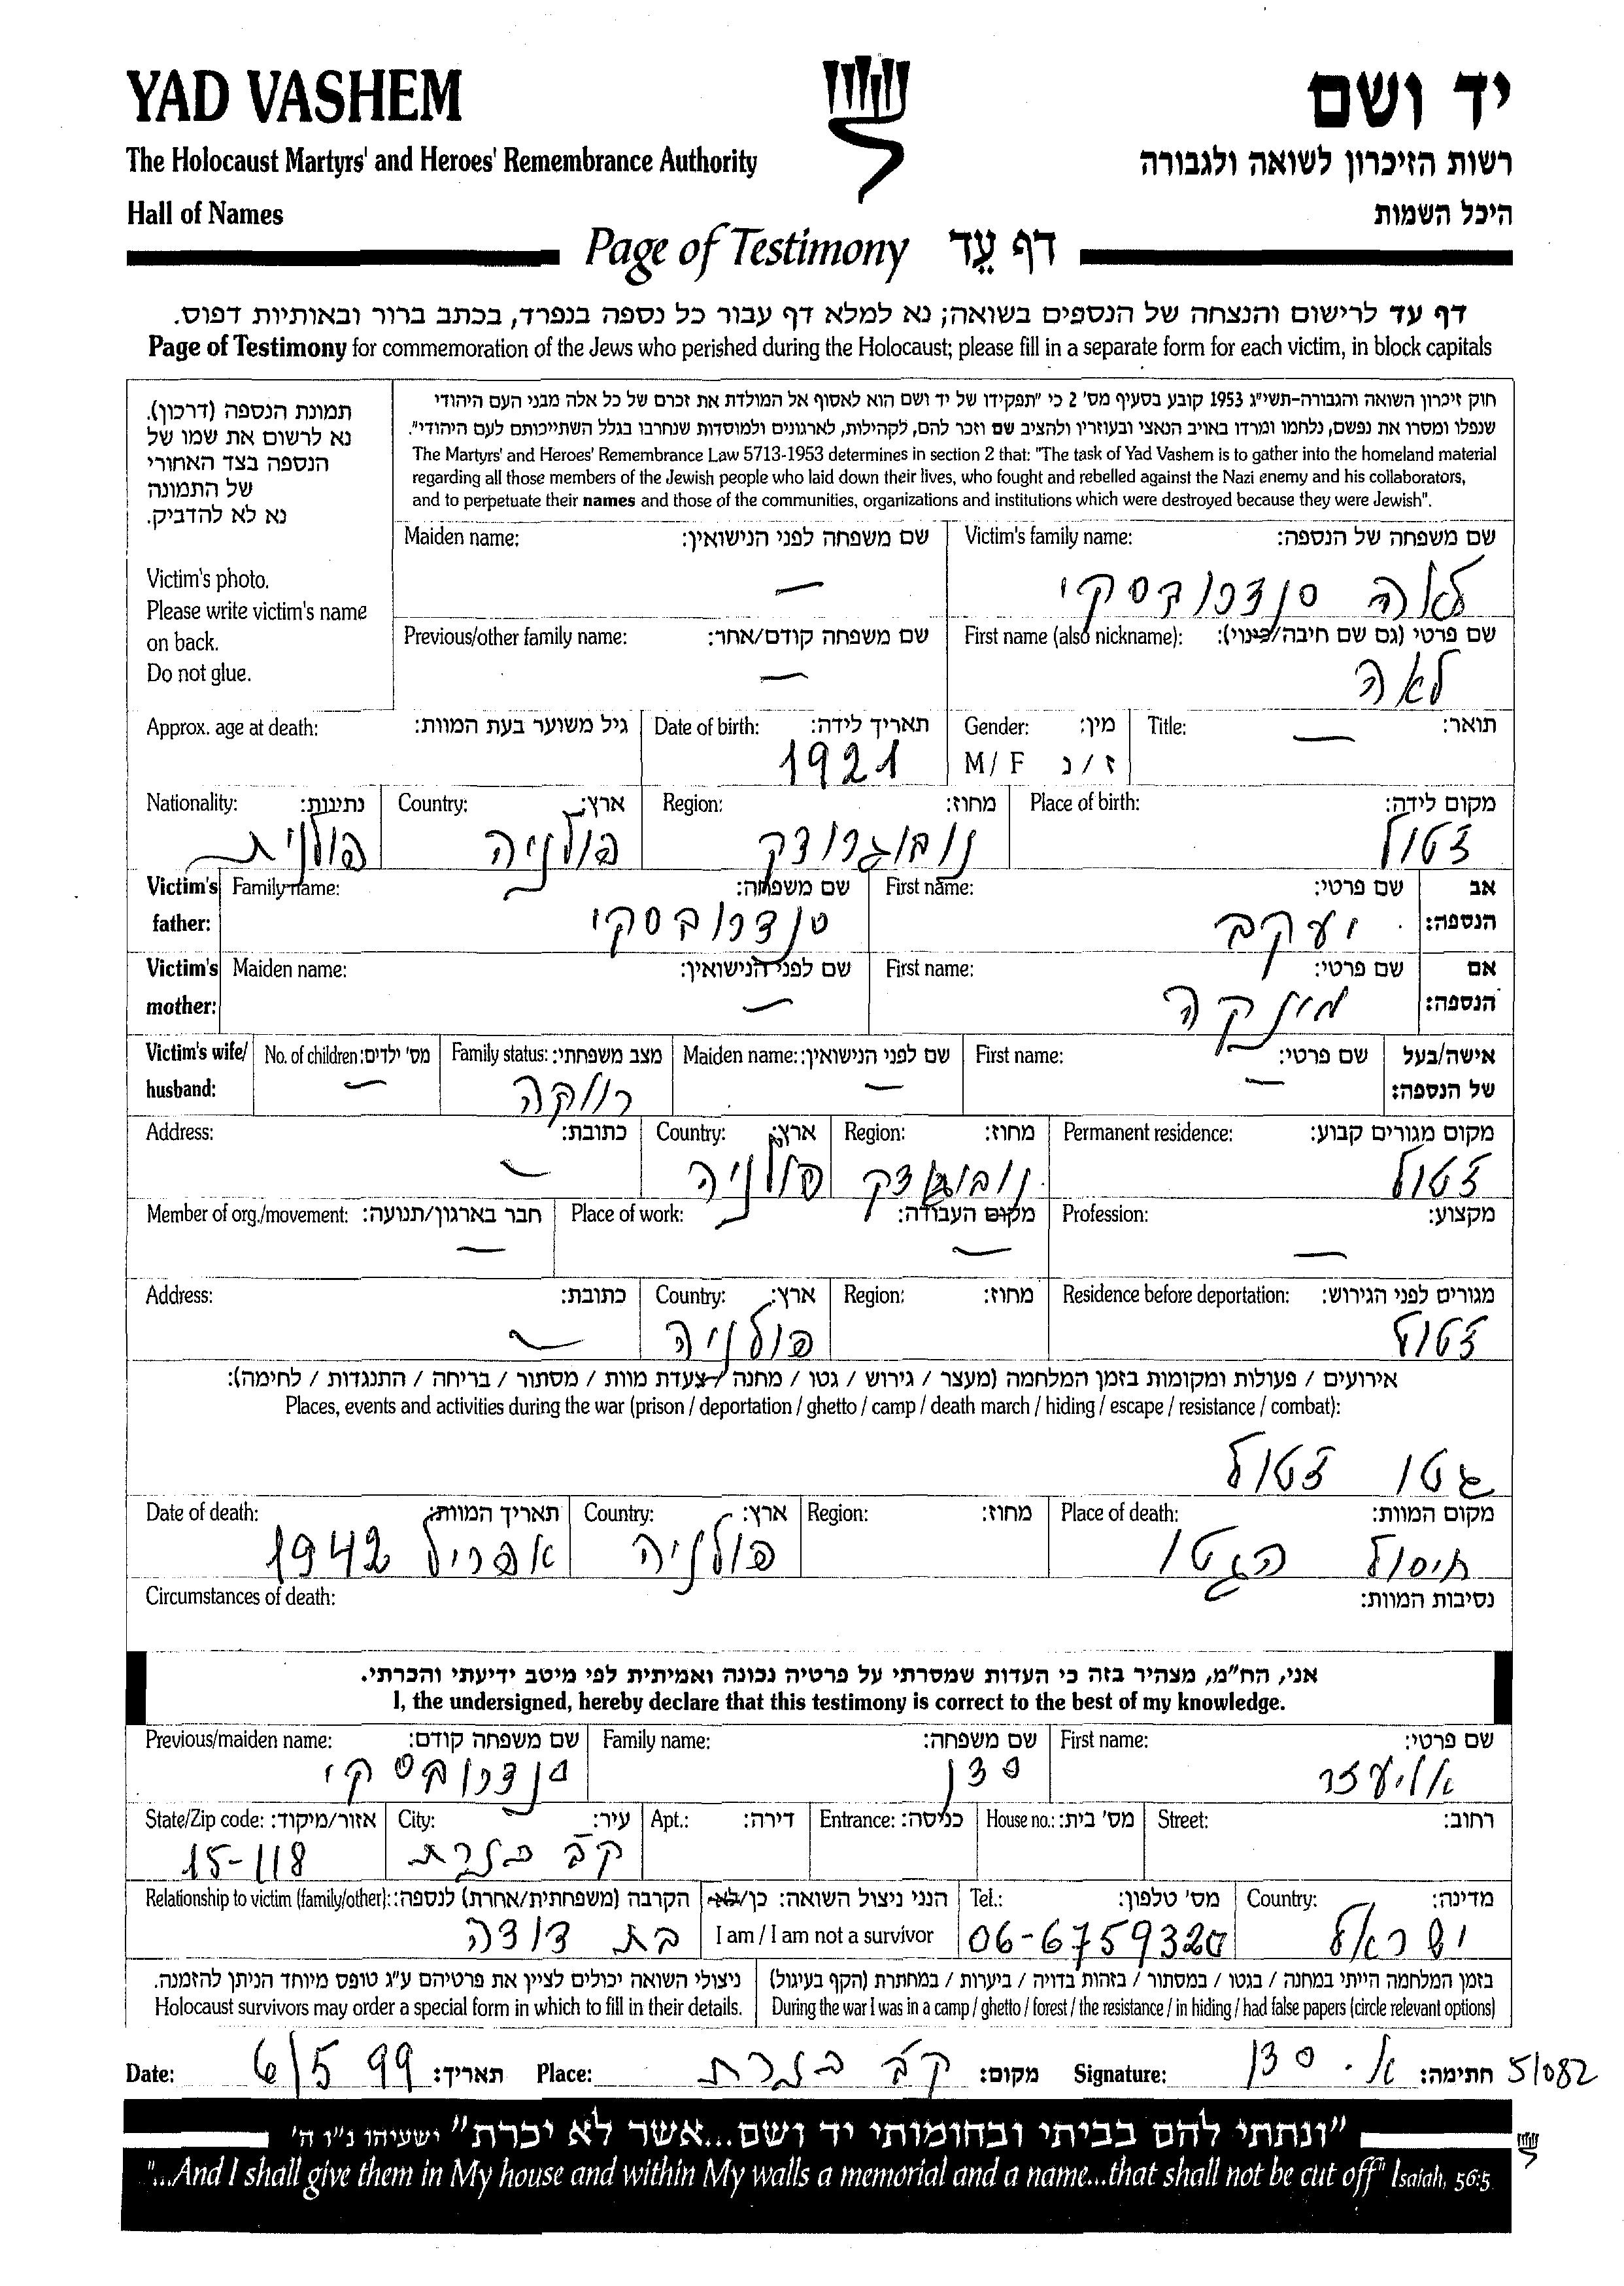 YAD VASHEM
יד ושם
The Holocaust Martyrs' and Heroes' Remembrance Authority
רשות הזיכרון לשואה ולגבורה
Hall of Names
היכל השמות
Page of Testimony דף עֵד
דף עד לרישום והנצחה של הנספים בשואה; נא למלא דף עבור כל נספה בנפרד, בכתב ברור ובאותיות דפוס.
Page of Testimony for commemoration of the Jews who perished during the Holocaust; please fill in a separate form for each victim, in block capitals
תמונת הנספה (דרכון).
נא לרשום את שמו של
הנספה בצד האחורי
של התמונה
נא לא להדביק.
Victim's photo.
Please write victim's name
on back.
Do not glue.
חוק זיכרון השואה והגבורה-תשי"ג 1953 קובע בסעיף מס' 2 כי "תפקידו של יד ושם הוא לאסוף אל המולדת את זכרם של כל אלה מבני העם היהודי
שנפלו ומסרו את נפשם, נלחמו ומרדו באויב הנאצי ובעוזריו ולהציב שם וזכר להם, לקהילות, לארגונים ולמוסדות שנחרבו בגלל השתייכותם לעם היהודי".
The Martyrs' and Heroes' Remembrance Law 5713-1953 determines in section 2 that: "The task of Yad Vashem is to gather into the homeland material
regarding all those members of the Jewish people who laid down their lives, who fought and rebelled against the Nazi enemy and his collaborators,
and to perpetuate their names and those of the communities, organizations and institutions which were destroyed because they were Jewish".
Maiden name: שם משפחה לפני הנישואין: Victim's family name: שם משפחה של הנספה:
— לאה סנדרובסקי
Previous/other family name: שם משפחה קודם/אחר: First name (also nickname): שם פרטי (גם שם חיבה/כינוי):
— לאה
Approx. age at death: גיל משוער בעת המוות: Date of birth: תאריך לידה: Gender: מין: Title: תואר:
1921 M/ F ז / נ —
Nationality: נתינות: Country: ארץ: Region: מחוז: Place of birth: מקום לידה:
פולנית פולניה נובוגרודק זטול
Victim's father: Family name: שם משפחה: First name: שם פרטי: אב הנספה:
סנדרובסקי יעקב
Victim's mother: Maiden name: שם לפני הנישואין: First name: שם פרטי: אם הנספה:
— מונקה
Victim's wife/ husband: No. of children: מס' ילדים: Family status: מצב משפחתי: Maiden name: שם לפני הנישואין: First name: שם פרטי: אישה/בעל של הנספה:
— רווקה — —
Address: כתובת: Country: ארץ: Region: מחוז: Permanent residence: מקום מגורים קבוע:
— פולניה נובוגרודק זטול
Member of org./movement: חבר בארגון/תנועה: Place of work: מקום העבודה: Profession: מקצוע:
— — —
Address: כתובת: Country: ארץ: Region: מחוז: Residence before deportation: מגורים לפני הגירוש:
— פולניה זטול
אירועים / פעולות ומקומות בזמן המלחמה (מעצר / גירוש / גטו / מחנה / צעדת מוות / מסתור / בריחה / התנגדות / לחימה):
Places, events and activities during the war (prison / deportation / ghetto / camp / death march / hiding / escape / resistance / combat):
גטו זטול
Date of death: תאריך המוות: Country: ארץ: Region: מחוז: Place of death: מקום המוות:
אפריל 1942 פולניה חיסול הגטו
Circumstances of death: נסיבות המוות:
אני, הח"מ, מצהיר בזה כי העדות שמסרתי על פרטיה נכונה ואמיתית לפי מיטב ידיעתי והכרתי.
I, the undersigned, hereby declare that this testimony is correct to the best of my knowledge.
Previous/maiden name: שם משפחה קודם: Family name: שם משפחה: First name: שם פרטי:
סנדרובסקי סדן אליעזר
State/Zip code: אזור/מיקוד: City: עיר: Apt.: דירה: Entrance: כניסה: House no.: מס' בית: Street: רחוב:
15-118 קב' כנרת
Relationship to victim (family/other): הקרבה (משפחתית/אחרת) לנספה: הנני ניצול השואה: כן/לא Tel.: מס' טלפון: Country: מדינה:
בת דודה I am / I am not a survivor 06-6759320 ישראל
ניצולי השואה יכולים לציין את פרטיהם ע"ג טופס מיוחד הניתן להזמנה. בזמן המלחמה הייתי במחנה / בגטו / במסתור / בזהות בדויה / ביערות / במחתרת (הקף בעיגול)
Holocaust survivors may order a special form in which to fill in their details. During the war I was in a camp / ghetto / forest / the resistance / in hiding / had false papers (circle relevant options)
Date: 6/5 99 תאריך: Place: קב' כנרת מקום: Signature: א. סדן חתימה: 5/082
"ונתתי להם בביתי ובחומותי יד ושם...אשר לא יכרת" ישעיהו נ"ו ה'
"...And I shall give them in My house and within My walls a memorial and a name...that shall not be cut off" Isaiah, 56:5